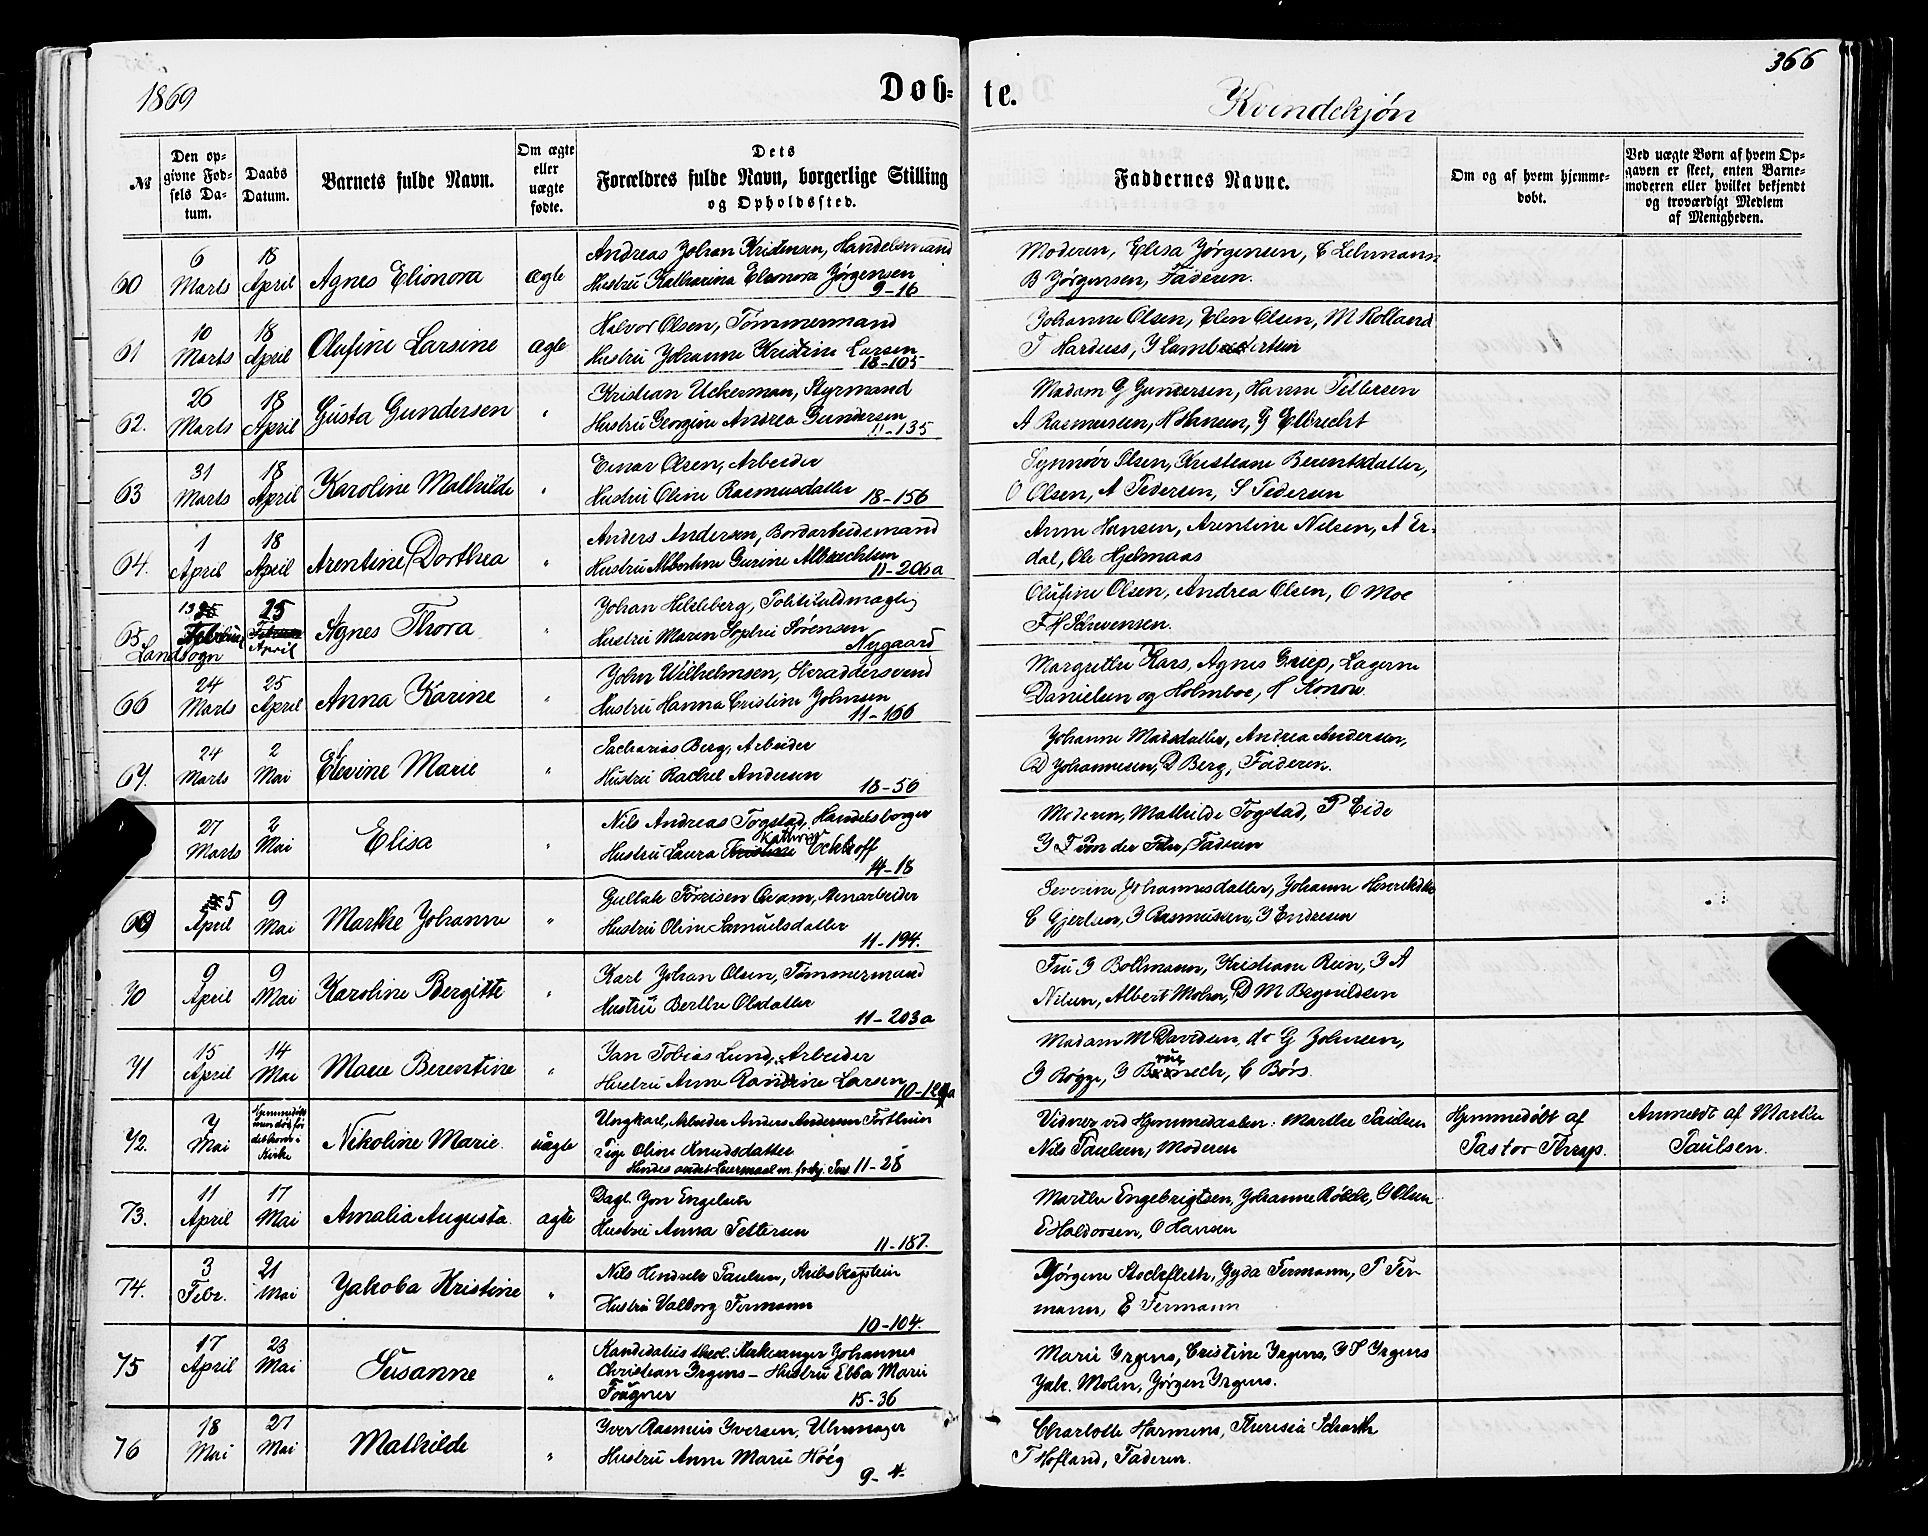 366
1869
Døb-
te.
Kvindekjøn
№
Den op-
givne Fød-
sels Da-
tum.
Daabs
Datum.
Barnets fulde Navn.
Om ægte
eller
uægte
fødte.
Dets
Forældres fulde Navn, borgerlige Stilling
og Opholdssted.
Faddernes Navne.
Om og af hvem hjemme-
døbt.
Ved uægte Børn af hvem Op-
gaven er skeet, enten Barne-
moderen eller hvilket bekjendt
og troværdigt Medlem
af Menigheden.
60
6 Marts
18 April
Agnes Elionora
ægte
Andreas Johan Kristensen, Handelsmand
Hustru Katharina Eleonora Jørgensen
9-16
Moderen, Elisa Jørgensen, C Lehmann
B Jørgensen, Faderen.
61
10 Marts
18 April
Olufine Larsine
ægte
Halvor Olsen, Tømmermand
Hustru Johanne Kristine Larsen
18-105
Johanne Olsen, Elen Olsen, M Rolland
T Harduss, J Lambertsen
62.
26 Marts
18 April
Gusta Gundersen
"
Kristian Uckerman, Styrmand
Hustru Georgine Andrea Gundersen
11-135
Madam G Gundersen, Hanne Pettersen
A Rasmussen, H Hansen, G Elbrecht
63
31 Marts
18 April
Karoline Mathilde
"
Einar Olsen, Arbeider
Hustru Oline Rasmusdatter 18-156
Synnøve Olsen, Kristiane Berentsdatter,
O Olsen, A Pedersen, S Pedersen
64.
1 April
18 April
Arentine Dorthea
"
Anders Andersen, Bordarbeidsmand
Hustru Albertine Gurine Albrechtsen
11-206a
Anne Hansen, Arentine Nilsen, A Er-
dal, Ole Hjelmaas
65
13
25
April
Landsogn
Agnes Thora
"
Johan Helleberg, Politifuldmægtig
Hustru Maren Sophie Sørensen
Nygaard
Olufine Olsen, Andrea Olsen, O Moe
F H Stevensen.
66
24 Marts
25 April
Anna Karine
"
John Wilhelmsen, Skræddersvend
Hustru Hanna Cristine Johnsen
11-166
Margrethe Kars, Agnes Griep, Lagerne
Danielsen og Holmboe, H Konow
67.
24 Marts
2 Mai
Elevine Marie
"
Sacharias Berg, Arbeider
Hustru Rachel Andersen
18-56
Johanne Madsdatter, Andrea Andersen,
D Johannesen, D Berg, Faderen.
27 Marts
2 Mai
Elisa
"
Nils Andreas Togstad, Handelsborger
Kathrine
Hustru Laura Eckhoff
14-18
Moderen, Mathilde Togstad, P Eide
69
5 April
9 Mai
Marthe Johanne
"
Hustru Oline Samuelsdatter
11-194.
Severine Johannesdatter, Johanne Henriksdtr
C Gjertsen, J Rasmussen, J Endresen
70
9 April
9 Mai
Karoline Bergitte
"
Karl Johan Olsen, Tømmermand
Hustru Berthe Olsdatter
11-203a
Fru J Bollmann, Kristiane Rein, J A
Nilsen, Albert Mohn, D M Brynildsen
71
15 April
14 Mai
Marie Berentine
"
Jan Tobias Lund, Arbeider
Hustru Anne Larsen
Madam M Davidsen, do G Johnsen,
J Rogge, C Børs.
72.
7 Mai
Nikoline Marie.
uægte
Ungkarl, Arbeider Anders Andersen
Pige Oline Knudsdatter
11-28
Vidner ved Hjemmedaaben: Marthe Paulsen
Nils Paulsen, Moderen
Hjemmedøbt af
Pastor Thrap.
Anmeldt af Marthe
Paulsen.
73.
11 April
17 Mai
Amalia Augusta.
ægte
Dagl. Jon Engelsen
Hustru Anna Pettersen
11-187.
Marthe Engebrigtsen, Johanne Røbek, G Olsen
E Haldorsen, O Hansen
74.
3 Febr.
21 Mai
Jakoba Kristine
"
Nils Hendrik Paulsen, Skibskaptein
Hustru Valborg Fermann
10-104.
Jørgene Stockfleth, Gyda Fermann, P Fer-
mann, E Fermann
75
17 April
23 Mai
Susanne
"
Kandidatus theol. Kirkesanger Johannes
Christian Irgens – Hustru Ebba Marie
Fougner
15-36
Marie Irgens, Cristine Irgens, J S Irgens
Jak. Mohn, Jørgen Irgens.
76
18 Mai
27 Mai
Mathilde
"
Iver Rasmus Iversen, Uhrmager
Hustru Anne Marie Høeg
9-4.
Charlotte Harmens, Theresia Schartk
T Hofland, Faderen.